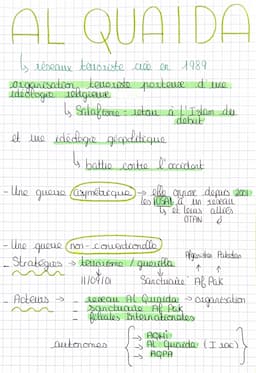 AL QUAIDA
↳ réseau terroriste créé en 1989
organisation terroriste porteuse d'une
idéologie religieuse
↳ Salafisme : retour à l'Islam du
début
et une idéologie géopolitique
↳ battre contre l'occident
- Une guerre asymétrique → elle oppose depuis 2001
les USA à un réseau
↳ et leurs alliés
OTAN
- Une guerre non-conventionnelle
Afganistan Pakistan
- Stratégies → terrorisme / guérilla
11/09/01 Sanctuaire Af Pak
- Acteurs → - réseau Al Quaida → organisation
- sanctuaire Af Pak
- filiales Internationales
autonomes → AQMI
→ AL Quaida (Irak)
→ AQPA